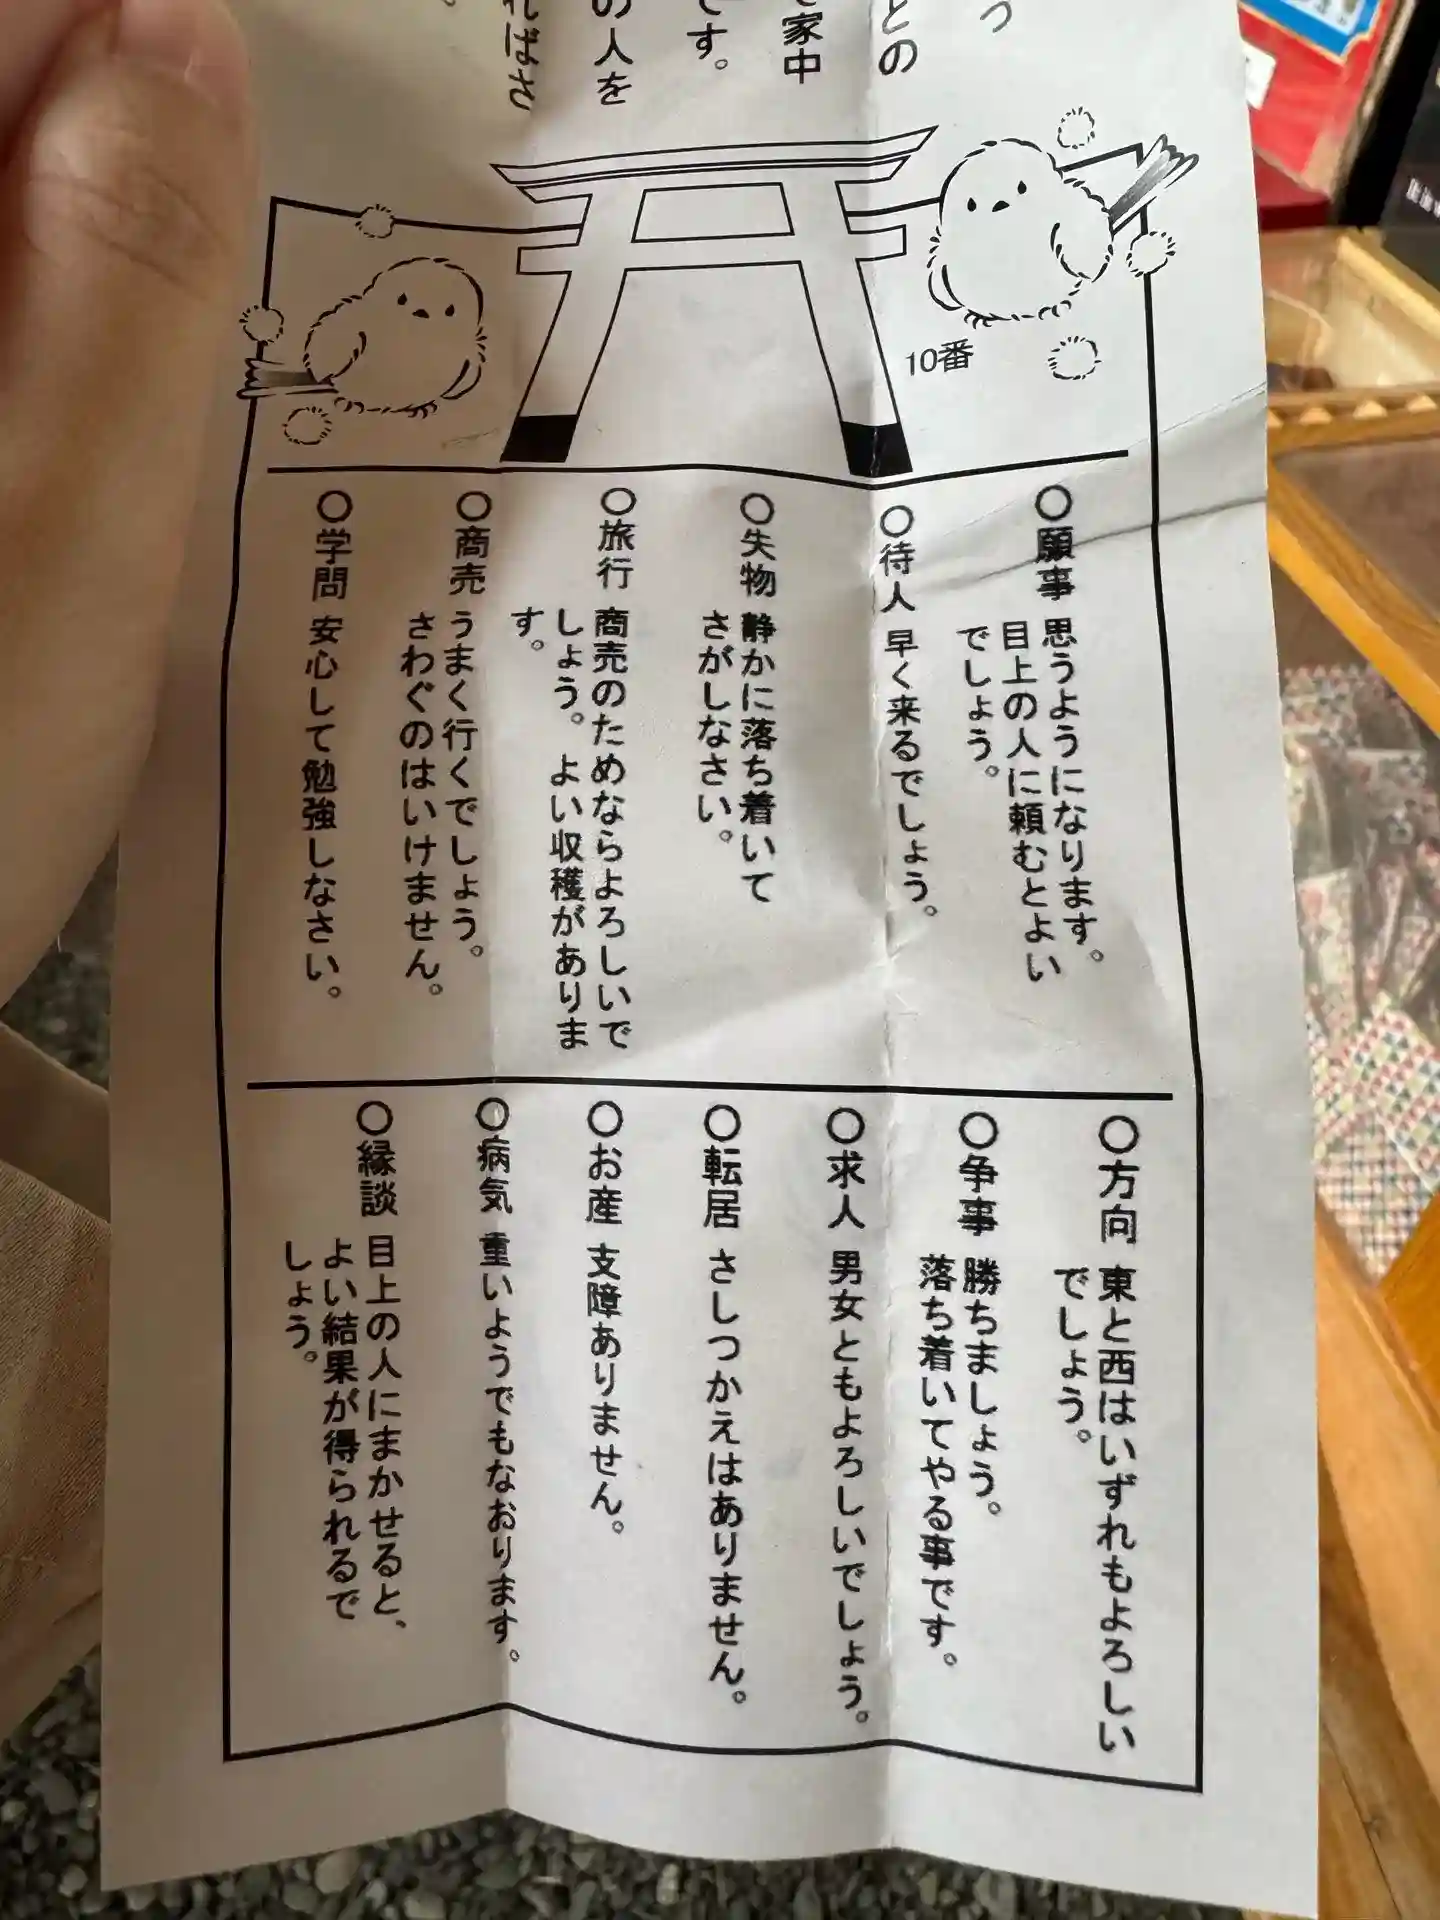 っ
との
家中
です。
の人を
ればさ
10番
○願事 思うようになります。
目上の人に頼むとよい
でしょう。
○待人 早く来るでしょう。
○失物 静かに落ち着いて
さがしなさい。
○旅行 商売のためならよろしいで
しょう。よい収穫がありま
す。
○商売 うまく行くでしょう。
さわぐのはいけません。
○学問 安心して勉強しなさい。
○方向 東と西はいずれもよろしい
でしょう。
○争事 勝ちましょう。
落ち着いてやる事です。
○求人 男女ともよろしいでしょう。
○転居 さしつかえはありません。
○お産 支障ありません。
○病気 重いようでもなおります。
○縁談 目上の人にまかせると、
よい結果が得られるで
しょう。